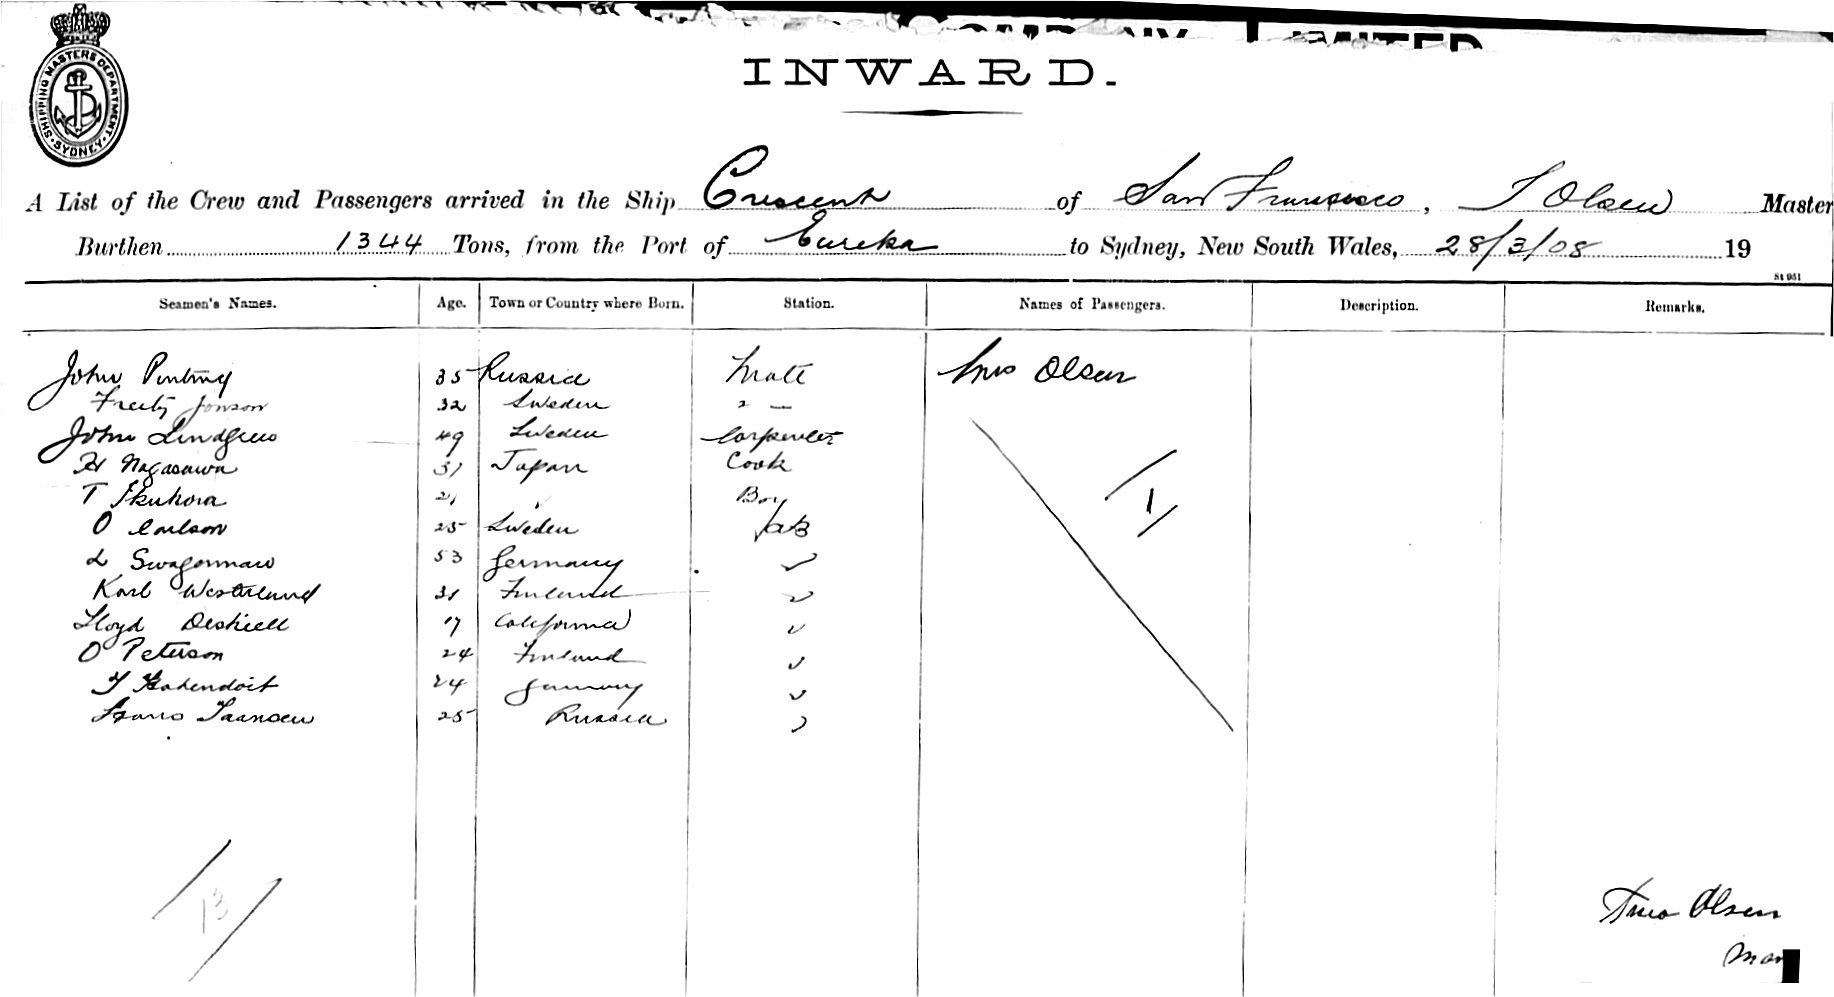 SHIPPING MASTERS DEPARTMENT
SYDNEY
INWARD.
A List of the Crew and Passengers arrived in the Ship Crescent of San Francisco, T Olsen Master
Burthen 1344 Tons, from the Port of Eureka to Sydney, New South Wales, 28/3/08 19
St 951
Seamen's Names. Age. Town or Country where Born. Station. Names of Passengers. Description. Remarks.
John 35 Russia Mate Mrs Olsen
Jonson 32 Sweden 2 —
John Lindgren 49 Sweden Carpenter
H Nagasawa 31 Japan Cook
T Ikuhora 21 " Boy
O Carlson 25 Sweden AB
L Swagerman 53 Germany
Karl Westerlund 31 Finland
Lloyd 17 California
O Peterson 24 Finland
24 Germany
25 Russia
1
13
Olsen